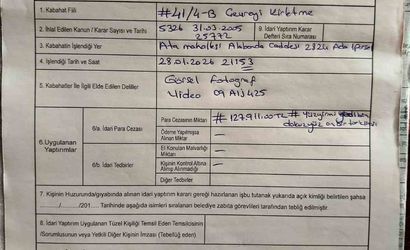 1. Kabahat Fiili #41/4-B Çevreyi Kirletme
2. İhlal Edilen Kanun / Karar Sayısı ve Tarihi 5326 31.03.2005 25772
9. İdari Yaptırım Karar Defteri Sıra Numarası
3. Kabahatin İşlendiği Yer Ata mahallesi Akbarda Caddesi
4. İşlendiği Tarih ve Saat 28.01.2026 2153
5. Kabahatler İle İlgili Elde Edilen Deliller Görsel Fotoğraf
Video 09 AIJ425
6.Uygulanan Yaptırımlar
6/a. İdari Para Cezası
Para Cezasının Miktarı # 127.911.00 TL #
Ödeme Yapılmışsa Alınan Miktar —
El Konulan Malvarlığı Miktarı —
6/b İdari Tedbirler
Kişinin Kontrol Altına Alınıp Alınmadığı —
Diğer Tedbirler
7. Kişinin Huzurunda/gıyabında alınan idari yaptırım kararı gereği hazırlanan işbu tutanak yukarıda açık kimliği belirtilen şahsa
....../....../201..... Tarihinde aşağıda isimleri sıralanan belediye zabıta görevlileri tarafından tebliğ edilmiştir.
8. İdari Yaptırım Uygulanan Tüzel Kişiliği Temsil Eden Temsilcisinin
/Sorumlusunun veya Yetkili Diğer Kişinin İmzası (Tebellüğ eden)